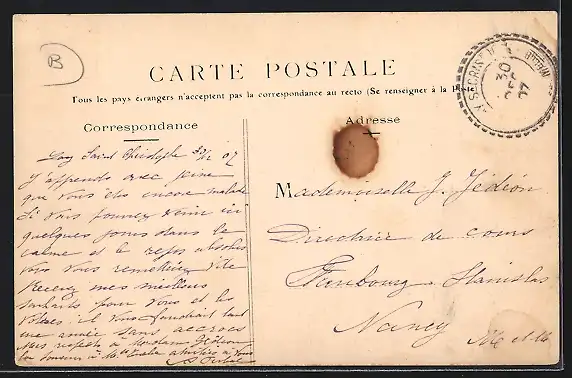 B
CARTE POSTALE
Tous les pays étrangers n'acceptent pas la correspondance au recto (Se renseigner à la Poste)
Correspondance
Adresse
Lay Saint Christophe 30/12 07
J'apprends avec peine
que vous êtes encore malade
Si vous pouvez venir
quelques jours dans le
calme et le repos absolus
vous vous remettriez vite
Recevez mes meilleurs
souhaits pour vous et les
vôtres: il vous faudrait tout
une année sans accrocs
Mes respects à Madame Jédion
à Mlle amitiés à vous
Mademoiselle J. Jédion
Directrice de cours
Faubourg Stanislas
Nancy
M et M